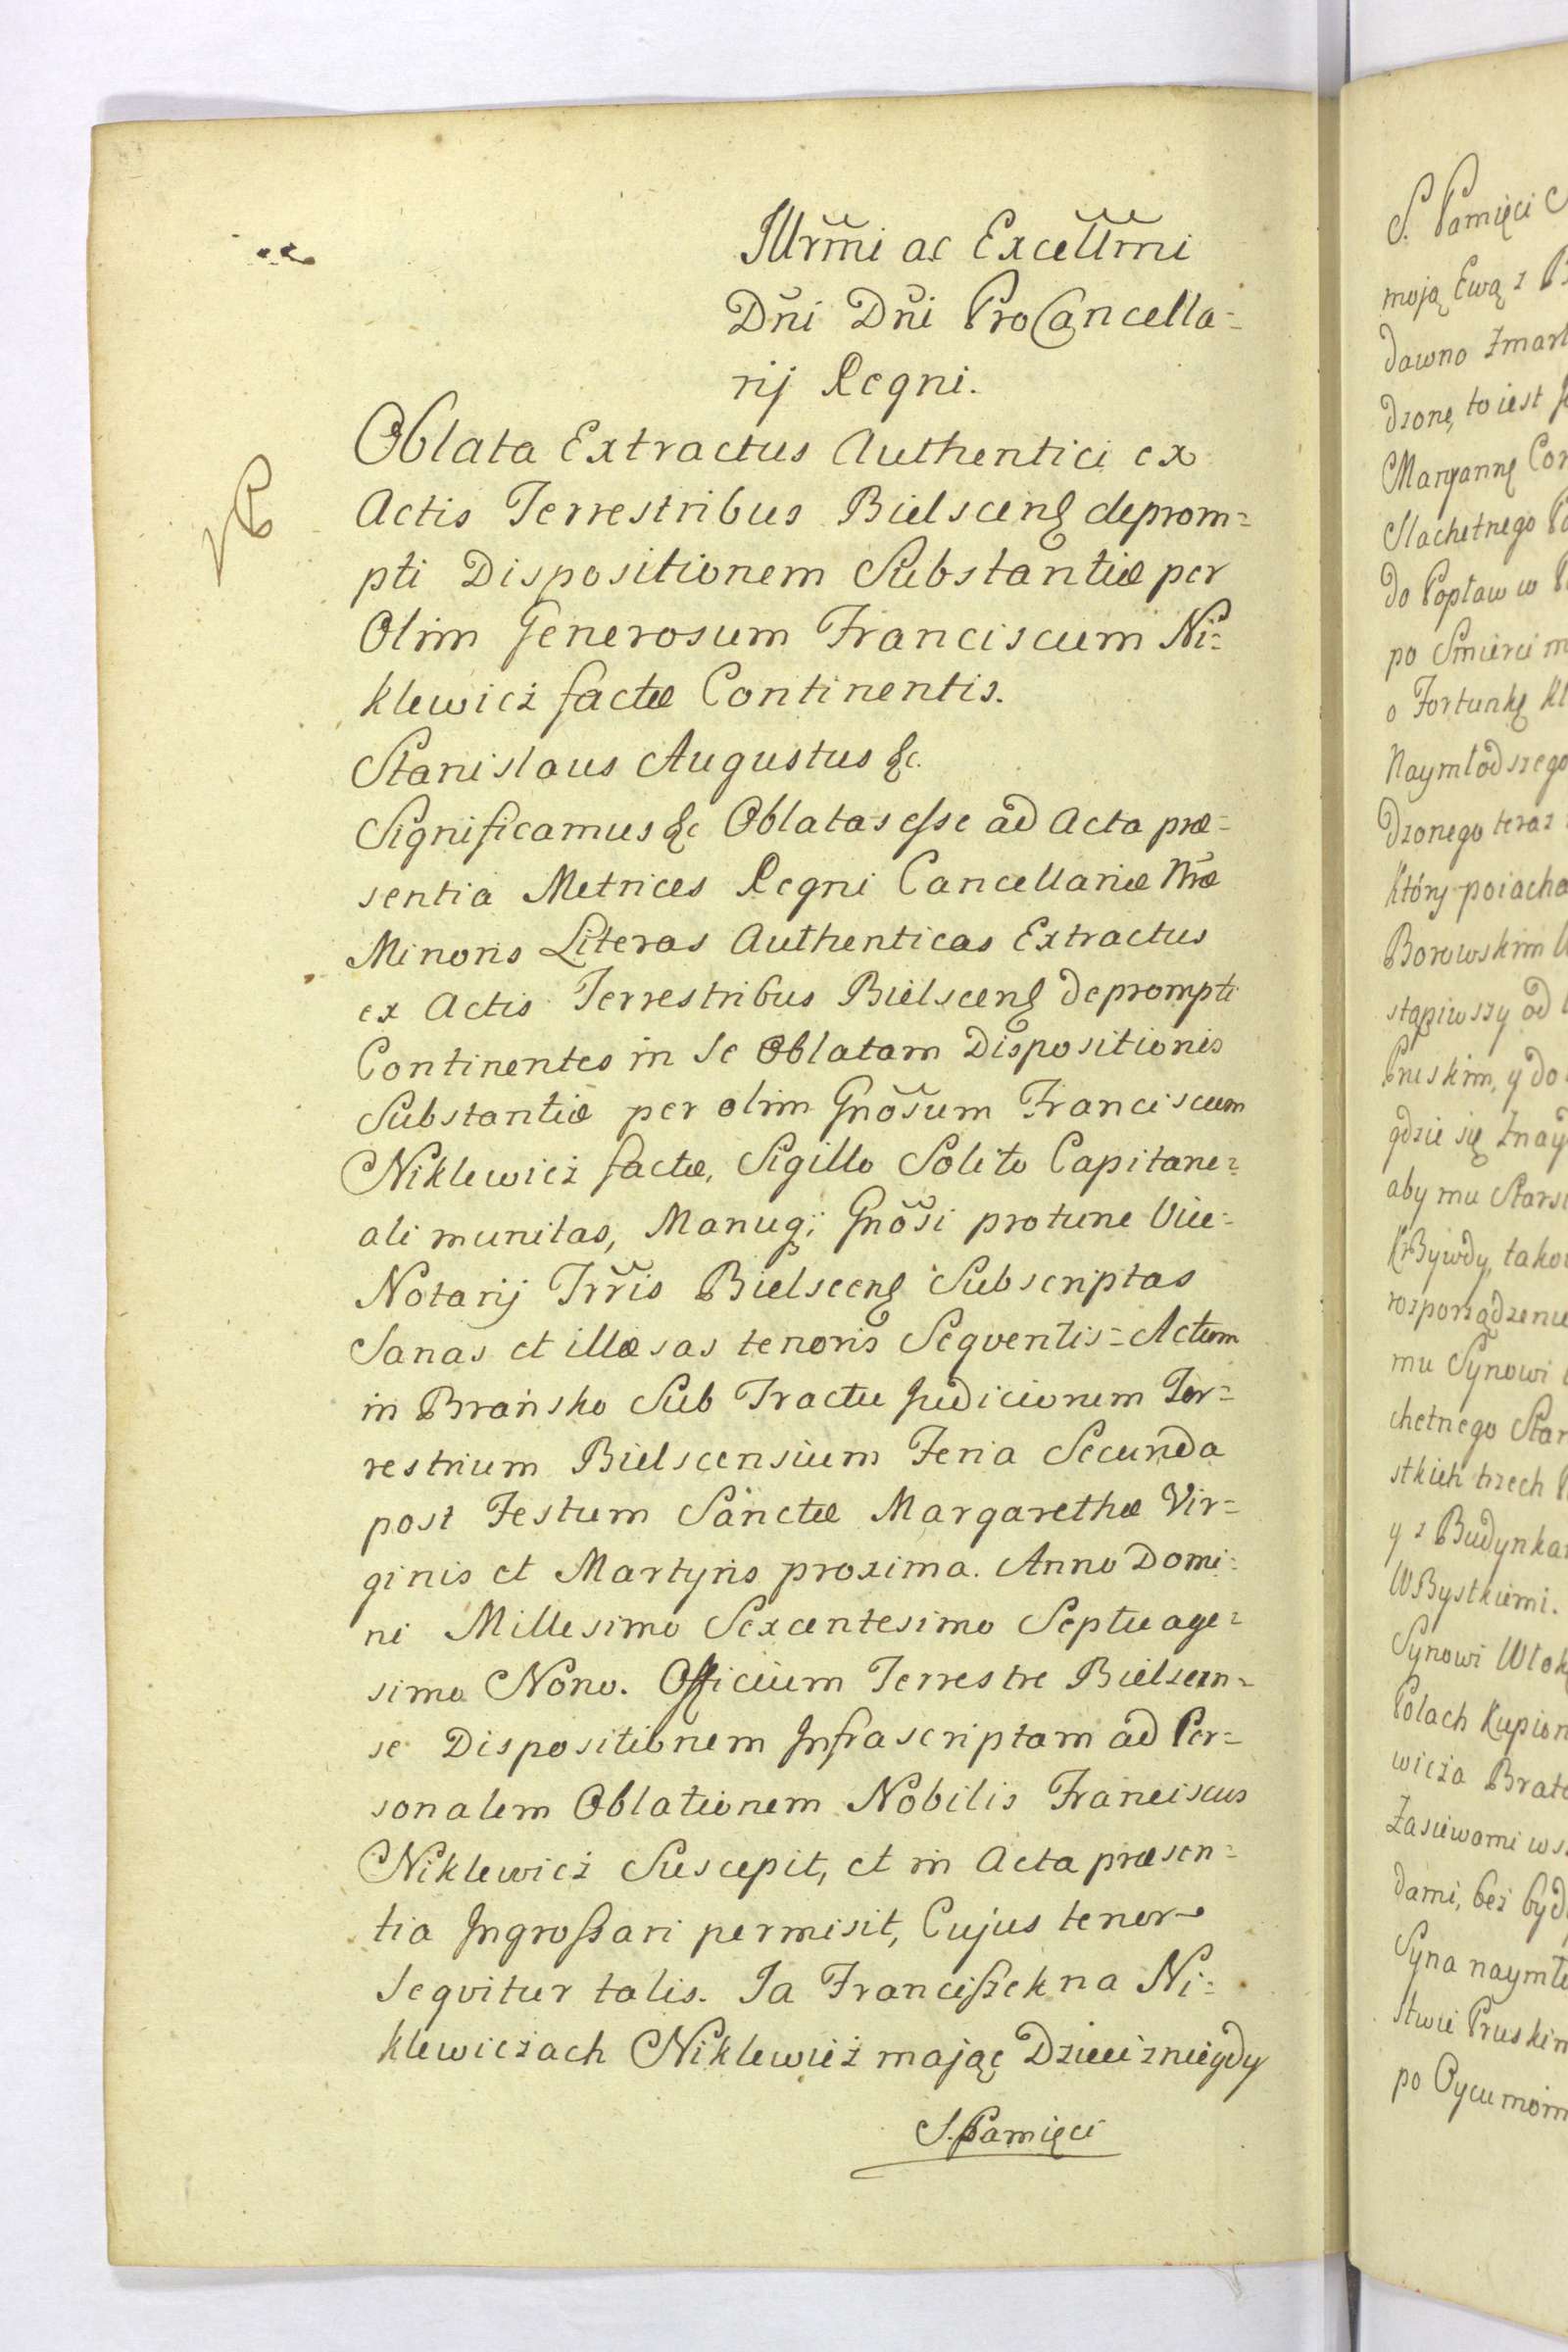 Illrm̃i ac Excellm̃i
Dñi Dñi ProCancella=
rij Regni.
Oblata Extractus Authentici ex
Actis Terrestribus Bielscenꝭ deprom=
pti Dispositionem Substantiæ per
Olim Generosum Franciscum Ni=
klewicż factæ Continentis.
Stanislaus Augustus &c.
Significamus &c Oblatas esse ad Acta præ=
sentia Metrices Regni Cancellariæ Nr̃æ
Minoris Literas Authenticas Extractus
ex Actis Terrestribus Bielscenꝭ deprompti
Continentes in se Oblatam Dispositionis
Substantiæ per olim Gnõsum Franciscum
Niklewicż factæ, Sigillo Solito Capitane=
ali munitas, Manuq; Gnõsi protunc Vice=
Notarij Trr̃is Bielscenꝭ Subscriptas
Sanas et illæsas tenoris Seqventis = Actum
in Brańsko Sub Tractu Judiciorum Ter=
restrium Bielscensium Feria Secunda
post Festum Sanctæ Margarethæ Vir=
ginis et Martyris proxima. Anno Domi=
ni Millesimo Sexcentesimo Septuage=
simo Nono. Officium Terrestre Bielscen=
se Dispositionem Infrascriptam ad Per=
sonalem Oblationem Nobilis Franciscus
Niklewicż Suscepit, et in Acta præsen=
tia Ingrossari permisit, Cujus tenor
Seqvitur talis. Ja Franciszek na Ni=
klewicżach Niklewicż mając Dzieci z niegdy
S. Pamięci
S. Pamięci
moją Ewą z
dawno Zmarł
dzone, to iest
Maryannę
Slachetnego
do Popław w
po Smierci
o Fortunkę
Naymłodszego
dzonego teraz
który poiacha
Borowskim
stąpiwszy od
Pruskim, y do
gdzie się Znay
aby mu Stars
krzywdy, tako
rozporządzeniu
mu Synowi
chetnego Star
stkich trzech
y z Budynka
Wszystkiemi.
Synowi Włok
Polach Kupion
wicża Brata
Zasiewami ws
dami, bez byd
Syna naymło
stwie Pruskim
po Oycu moim